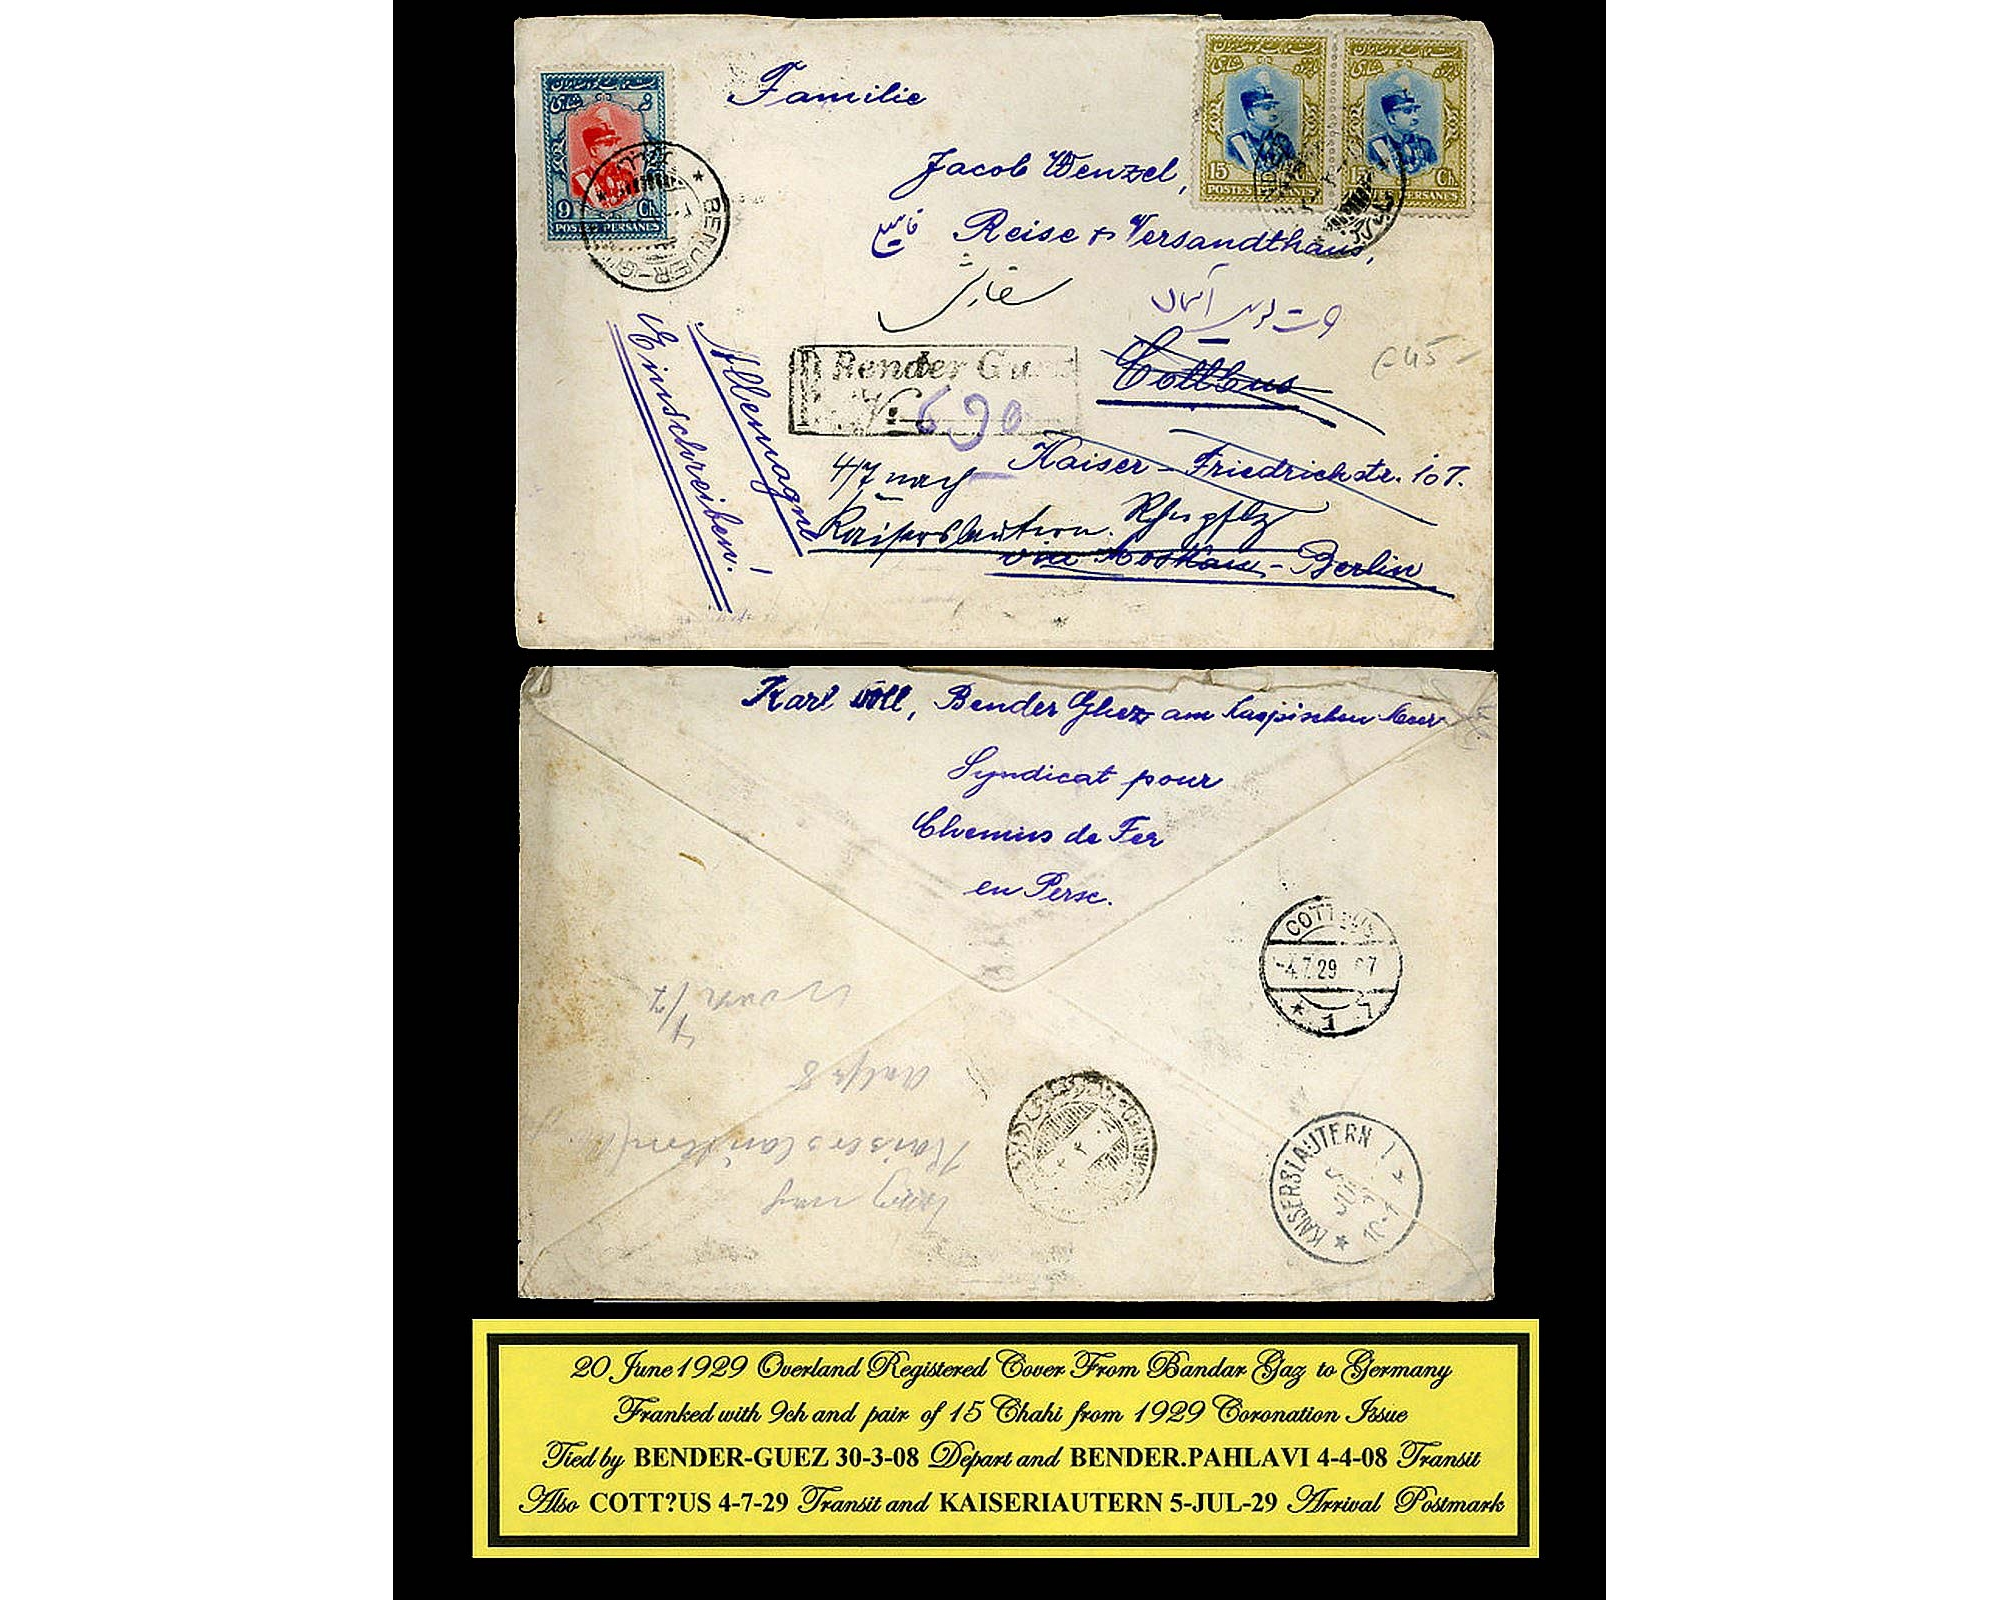 Familie
Jacob Wenzel,
Reise & Versandthaus,
سفارشی
Cottbus
Kaiser-Friedrichstr. 107.
via Moskau-Berlin
4/7 nach
Kaiserslautern. Rheinpfalz
Allemagne
Einschreiben!
R Bender Guez
No. 690
9 Ch.
POSTES PERSANES
BENDER-GUEZ
15 Ch.
POSTES PERSANES
15 Ch.
POSTES PERSANES
Karl Woll, Bender Ghez am Kaspischen Meer
Syndicat pour
Chemins de Fer
en Perse.
COTTBUS
-4.7.29
* 1
KAISERSLAUTERN 1
5 JUL
Kaiserslautern
20 June 1929 Overland Registered Cover From Bandar Gaz to Germany
Franked with 9ch and pair of 15 Chahi from 1929 Coronation Issue
Tied by BENDER-GUEZ 30-3-08 Depart and BENDER.PAHLAVI 4-4-08 Transit
Also COTT?US 4-7-29 Transit and KAISERIAUTERN 5-JUL-29 Arrival Postmark